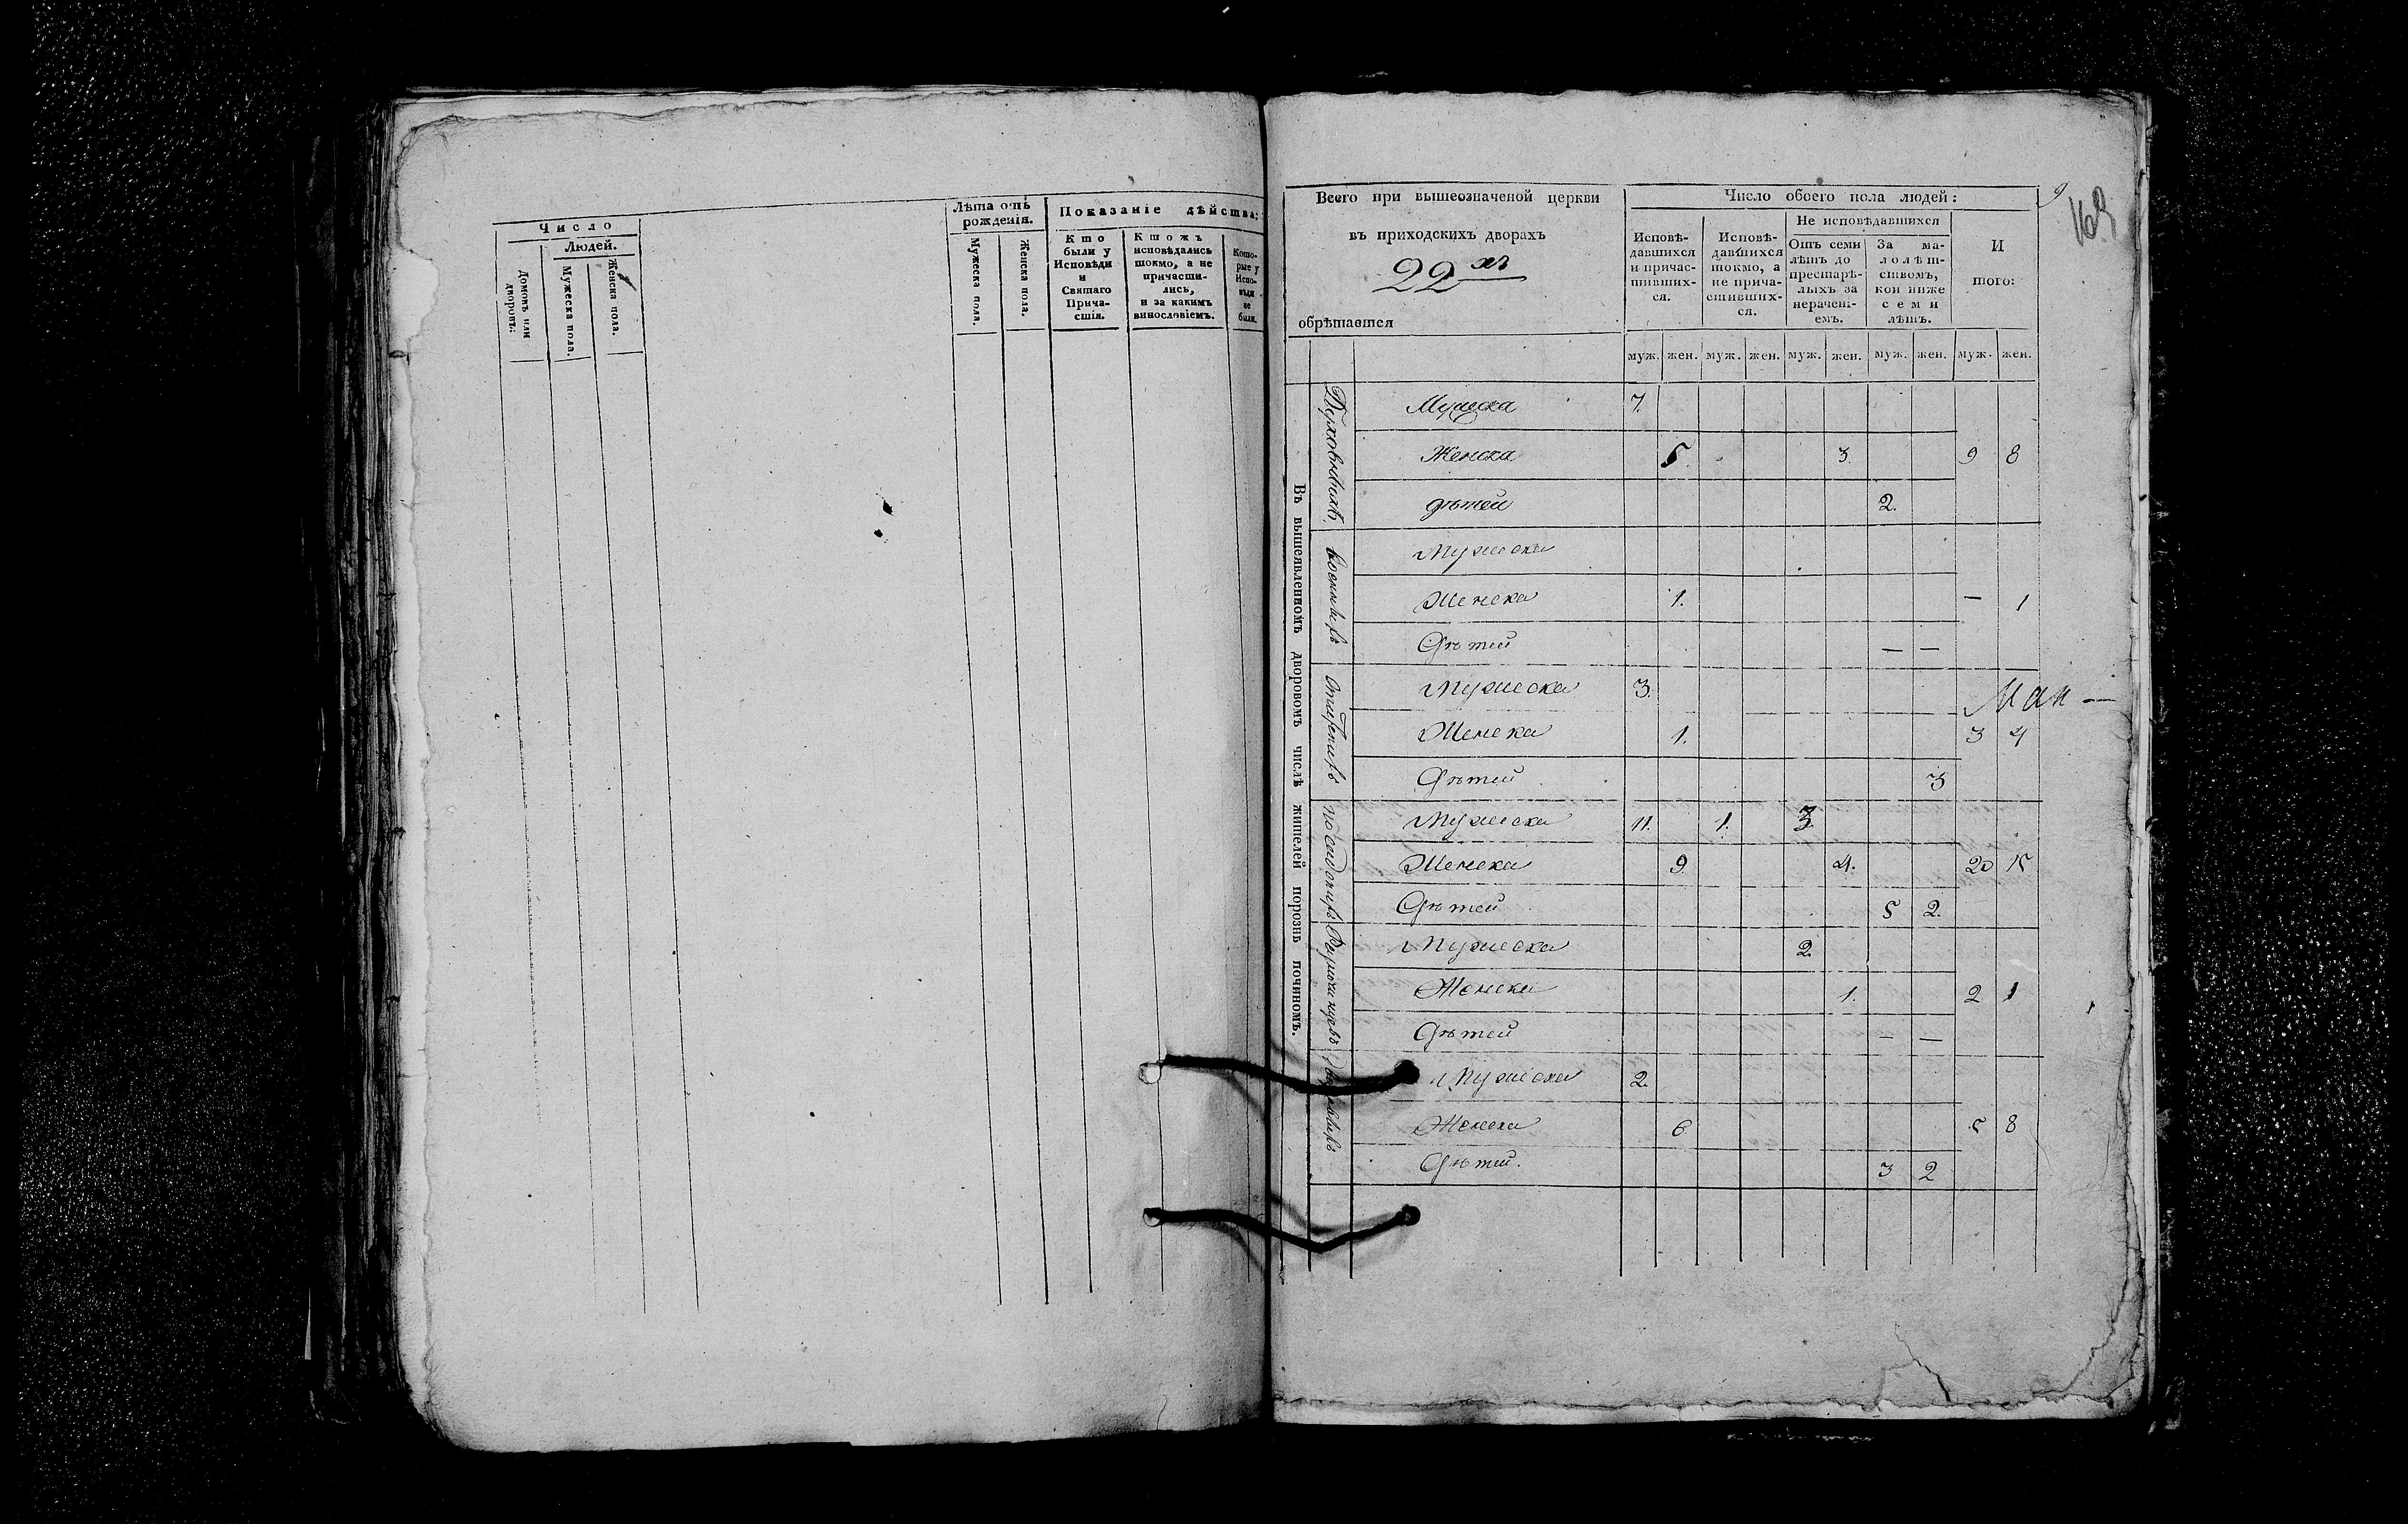 Число
Людей.
Домовъ или дворовъ.
Мужеска пола.
Женска пола.
Лѣта отъ рожденія.
Мужеска пола.
Женска пола.
Показаніе дѣйства:
Кто
были у
Исповѣди
и
Святаго
Прича-
стія.
Кто жъ
исповѣдались
токмо, а не
причасти-
лись,
и за какимъ
винословіемъ.
Кото-
рые у
Испо-
вѣди
не
были.
Всего при вышеозначеной церкви
въ приходскихъ дворахъ
22 хъ
обрѣтается
Число обоего пола людей:
Исповѣ-
давшихся
и причас-
тивших-
ся.
Исповѣ-
давшихся
токмо, а
не прича-
стивших-
ся.
Не исповѣдавшихся
Отъ семи
лѣтъ до
престарѣ-
лыхъ за
нерачені-
емъ.
За ма-
лолѣт-
ствомъ,
кои ниже
семи
лѣтъ.
И
того:
муж. жен. муж. жен. муж. жен. муж. жен. муж. жен.
Въ вышеявленномъ дворовомъ числѣ жителей порознь починомъ.
Духовныхъ
Мужеска 7.
Женска 5. 3. 9 8
дѣтей 2.
военныхъ
Мужеска
Женска 1. — 1
Дѣтей — —
Мужеска 3.
Женска 1. 3 4
Дѣтей 3
посадскихъ
Мужеска 11. 1. 3.
Женска 9 4. 20 15
Дѣтей 5 2.
Разночинцевъ
Мужеска 2.
Женска 1. 2 1
Дѣтей — —
Мужеска 2.
Женска 6 5 8
Дѣтей. 3 2